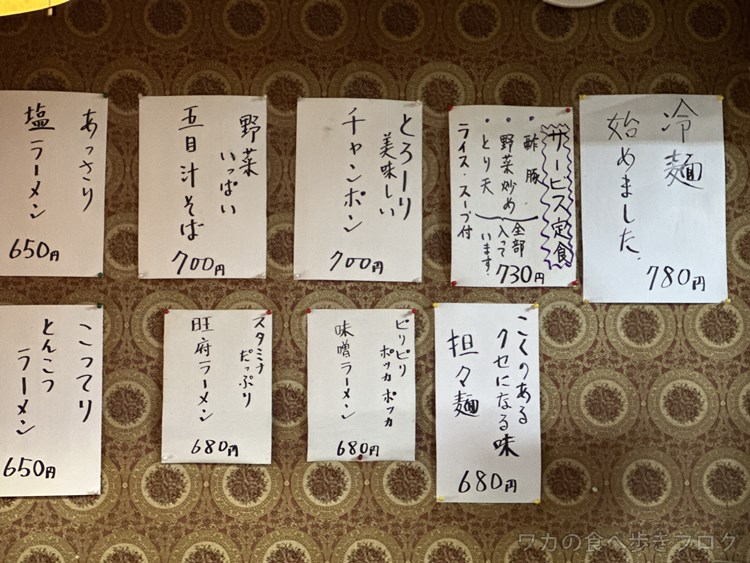 冷麺
始めました。
780円
サービス定食
・酢豚
・野菜炒め
・とり天
全部
入って
います
ライス・スープ付
730円
とろーり
美味しい
チャンポン
700円
野菜
いっぱい
五目汁そば
700円
あっさり
塩ラーメン
650円
こくのある
クセになる味
担々麺
680円
ピリピリ
ポッカポッカ
味噌ラーメン
680円
スタミナ
たっぷり
旺府ラーメン
680円
こってり
とんこつ
ラーメン
650円
ワカの食べ歩きブログ